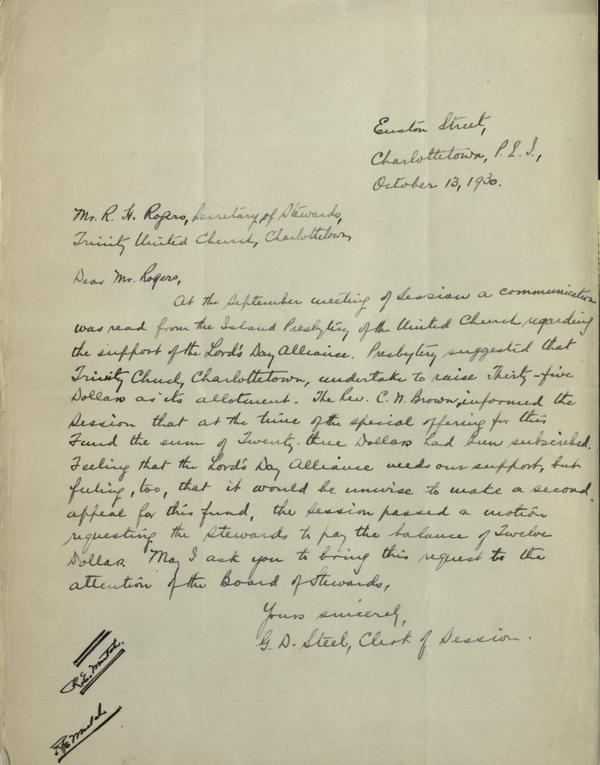 Euston Street,
Charlottetown, P.E.I.,
October 13, 1930.
Mr. R. H. Rogers, Secretary of Stewards,
Trinity United Church, Charlottetown,
Dear Mr. Rogers,
At the September meeting of Session a communication
was read from the Island Presbytery of the United Church regarding
the support of the Lord's Day Alliance. Presbytery suggested that
Trinity Church, Charlottetown, undertake to raise Thirty-five
Dollars as its allotment. The Rev. C. N. Brown, informed the
Session that at the time of the special offering for this
Fund the sum of Twenty-three Dollars had been subscribed.
Feeling that the Lord's Day Alliance needs our support, but
feeling, too, that it would be unwise to make a second
appeal for this fund, the Session passed a motion
requesting the Stewards to pay the balance of Twelve
Dollars. May I ask you to bring this request to the
attention of the Board of Stewards,
Yours sincerely,
G. D. Steel, Clerk of Session.